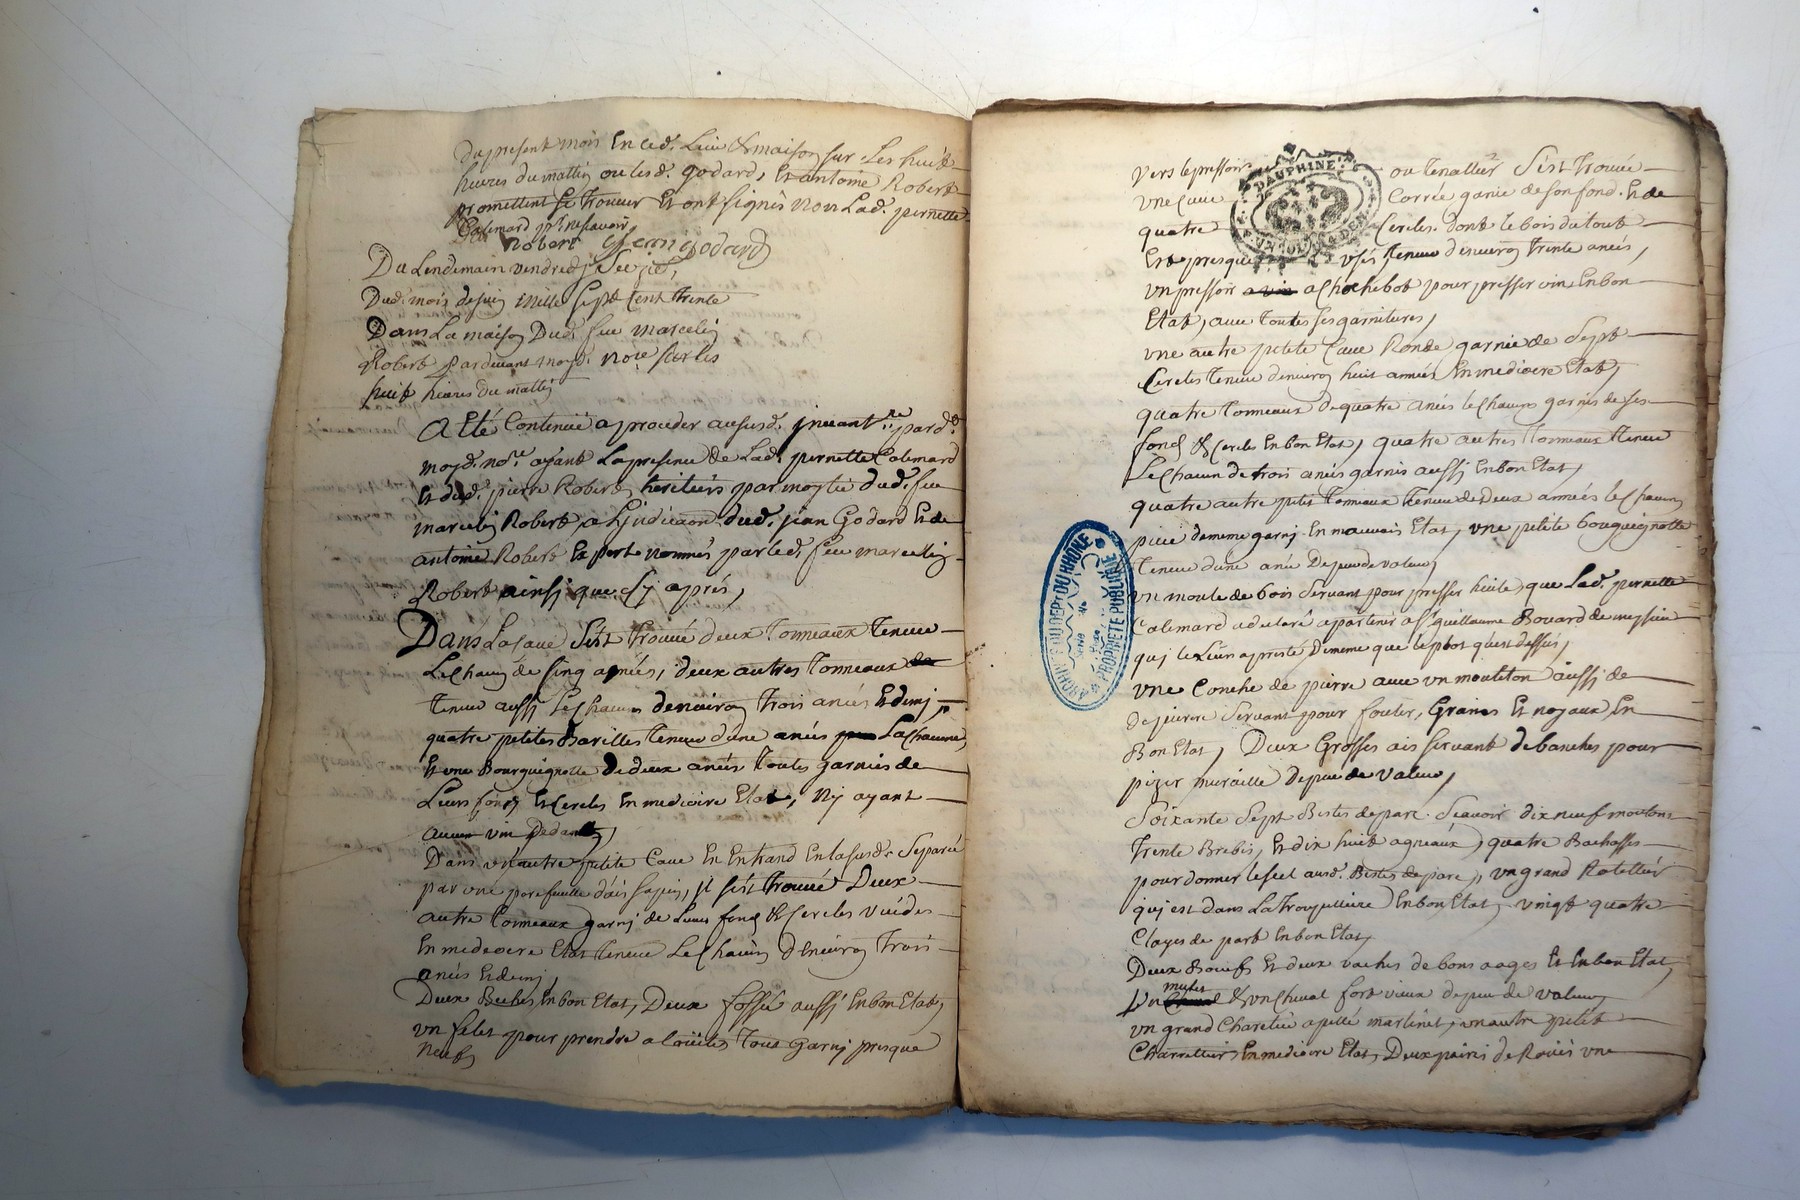 du present mois En ced. Lieu & maison sur Les huit
heures du mattin ou lesd. godard, Et antoine Robert
promettent se trouver Et ont signés non Lad. pernette
Calemard p.r ne scavoir
Robert Jean godard
Du Lendemain vendredy Sezie,
Dud. mois de juin mille sept Cent trente
Dans La maison Dud. feu marcelin
Robert pardevant moyd. no.re sur les
huit heures du mattin
A Eté Continué a proceder aususd. jnvant.re pard.
moyd. no.re ayant La presence de Lad. pernette Calemard
Et dud. pierre Robert, heritiers par moytié dud. feu
marcelin Robert, a Ljndicaon dud. jean Godard Et de
antoine Robert Expert nommés par led. feu marcellin
Robert ainsj que Cy apres,
Dans La Cave S'est trouvé deux tonneaux teneue
Le Chacun de Cinq anées, deux autres tonneaux de
teneue aussj Le Chacun denviron trois anées Et demj
quatre petites Barilles teneue d'une anée La Chacune
Et une Bourguignotte de deux anées toutes garnies de
Leurs fonds Et Cercles En mediocre Etat, Ny ayant
aucun vin Dedans,
Dans un autre petite Cave En Entrand En la susd. Separée
par une d'ais sapin, jl s'est trouvé Deux
autre tonneaux garnj de Leurs fond & Cercles vuides
En mediocre Etat teneue Le Chacun d'Environ trois
anées Et demj,
Deux Beches En bon Etat, Deux fossoé aussj En bon Etat,
un filet pour prendre a Caïlles tout Garnj presque
Neuf,
Vers le pressoir ou tenallier S'est trouvée
une Cuve DAUPHINÉ Corrée garnie de son fond Et de
quatre Cercles dont le bois du tout
Est presque usés, teneue denviron trente anées,
un pressoir a vin a Chochebot pour presser vin En bon
Etat, avec toutes ses garnitures,
une autre petite Cuve Ronde garnie de Sept
Cercles teneue denviron huit anées En mediocre Etat,
quatre tonneaux de quatre anées le Chacun garnis de ses
fond & Cercles En bon Etat, quatre autres tonneaux teneue
Le Chacun de trois anées garnis aussj En bon Etat,
quatre autre petis tonneaux teneue de Deux annees le Chacun
de meme garnj En mauvais Etat, une petite bouguignotte
teneue d'une anée De peu de valeur,
un moule de bois servant pour presser huile, que Lad. pernette
Calemard a declaré apartenir a Sr. guillaume Bouard de
quj le Luy a presté, De meme que le plot quj est dessus,
une Conche de pierre avec un mouleton aussj de
de pierre servant pour fouler, Graines Et noyaux En
Bon Etat, Deux Grosses ais servant de banches pour
pizer muraille de peu de valeur,
Soixante Sept Bestes de parc. Scavoir dix neuf moutons
trente Brebis, Et dix huit agneaux, quatre Bachasses
pour donner le sel ausd. Bestes de parc, un grand Rateilier
quj est dans La En bon Etat, vingt quatre
Clayes de parc En bon Etat,
Deux Boeufs Et deux vaches de bons aages Et En bon Etat,
Un mulet & un Cheval fort vieux de peu de valeur,
un grand Charetier apellé martinet, un autre petit
Charrettier, En mediocre Etat, Deux paires de Roües une
ARCHIVES DU DEPT DU RHONE
PROPRIÉTÉ PUBLIQUE